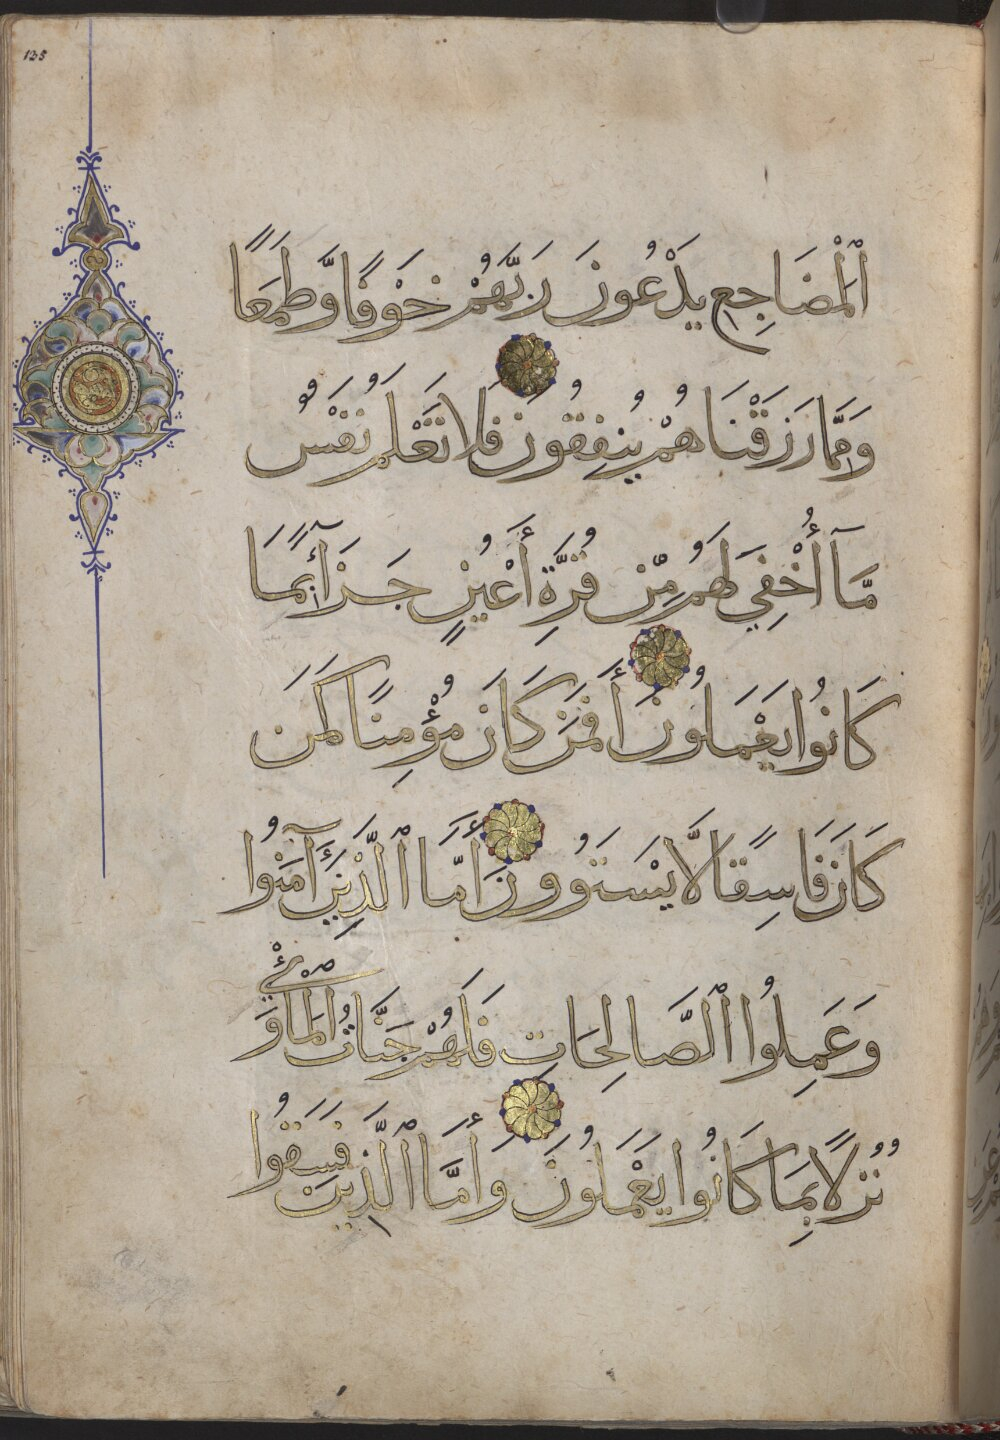 135
ٱلْمَضَاجِعِ يَدْعُونَ رَبَّهُمْ خَوْفًا وَّطَمَعًا
وَمِمَّا رَزَقْنَاهُمْ يُنفِقُونَ فَلَا تَعْلَمُ نَفْسٌ
مَّآ أُخْفِيَ لَهُم مِّن قُرَّةِ أَعْيُنٍ جَزَآءً بِمَا
كَانُوا يَعْمَلُونَ أَفَمَن كَانَ مُؤْمِنًا كَمَن
كَانَ فَاسِقًا لَّا يَسْتَوُونَ أَمَّا ٱلَّذِينَ آمَنُوا
وَعَمِلُوا ٱلصَّالِحَاتِ فَلَهُمْ جَنَّاتُ ٱلْمَأْوَىٰ
نُزُلًا بِمَا كَانُوا يَعْمَلُونَ وَأَمَّا ٱلَّذِينَ فَسَقُوا